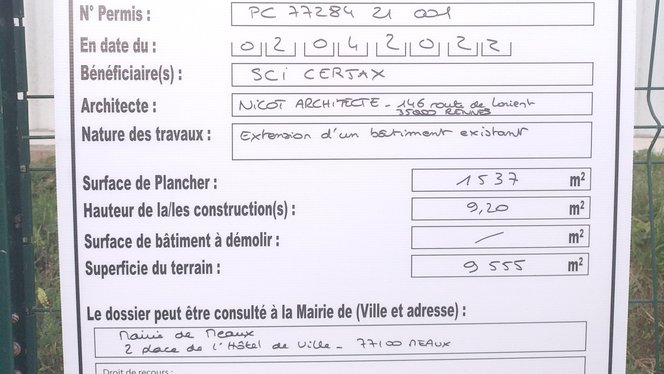 N° Permis : PC 77284 21 001
En date du : 02042022
Bénéficiaire(s) : SCI CERTAX
Architecte : NICOT ARCHITECTE - 146 route de Lorient
35000 RENNES
Nature des travaux : Extension d'un bâtiment existant
Surface de Plancher : 1537 m²
Hauteur de la/les construction(s) : 9,20 m²
Surface de bâtiment à démolir : / m²
Superficie du terrain : 9 555 m²
Le dossier peut être consulté à la Mairie de (Ville et adresse) :
Mairie de Meaux
2 place de l'Hôtel de Ville - 77100 MEAUX
Droit de recours :